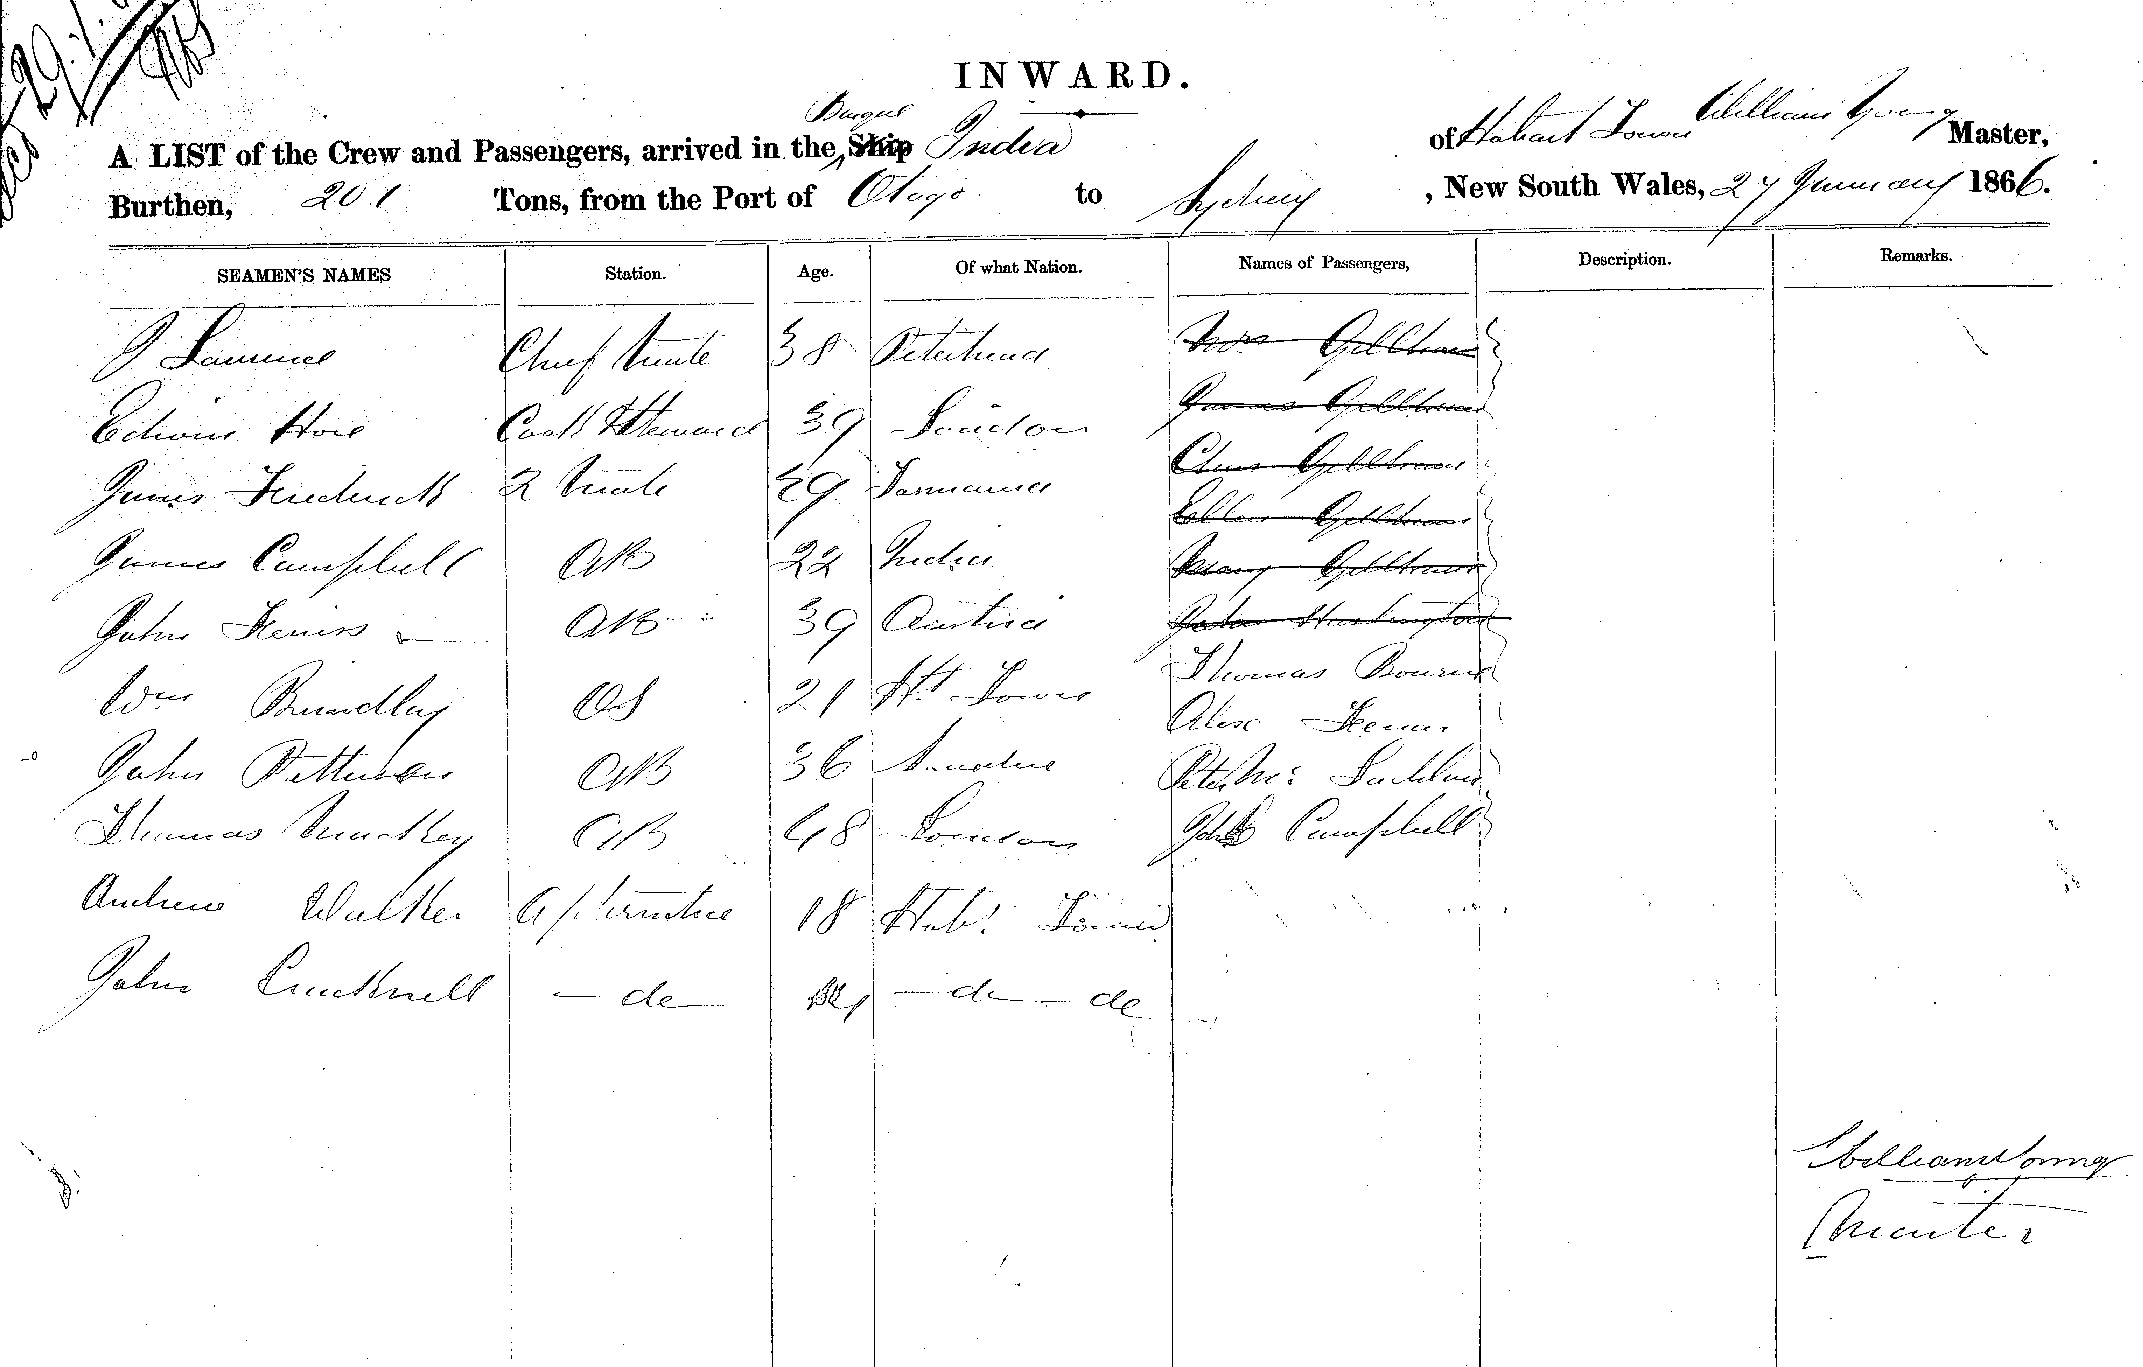 29.1.
INWARD.
A LIST of the Crew and Passengers, arrived in the Barque Ship India of Hobart Town William Young Master,
Burthen, 201 Tons, from the Port of Otago to Sydney, New South Wales, 27 January 1866.
SEAMEN'S NAMES Station. Age. Of what Nation. Names of Passengers, Description. Remarks.
J Laurence Chief Mate 38 Peterhead Mrs Gellham
Edwin Hore Cook & Steward 39 London James Gellham
James Frederick 2 Mate 29 Tasmania Gellham
James Campbell AB 22 India Ellen Gellham
John AB 39 Austria Mary Gellham
Wm Brindley OS 21 Ht Town John
John Patterson AB 36 Thomas Bourne
Thomas Mackey AB 48 London Alex
Andrew Walker Apprentice 18 Hobt Town Peter Mc
John Cracknell - do - - do - do John Campbell
William Young
Master